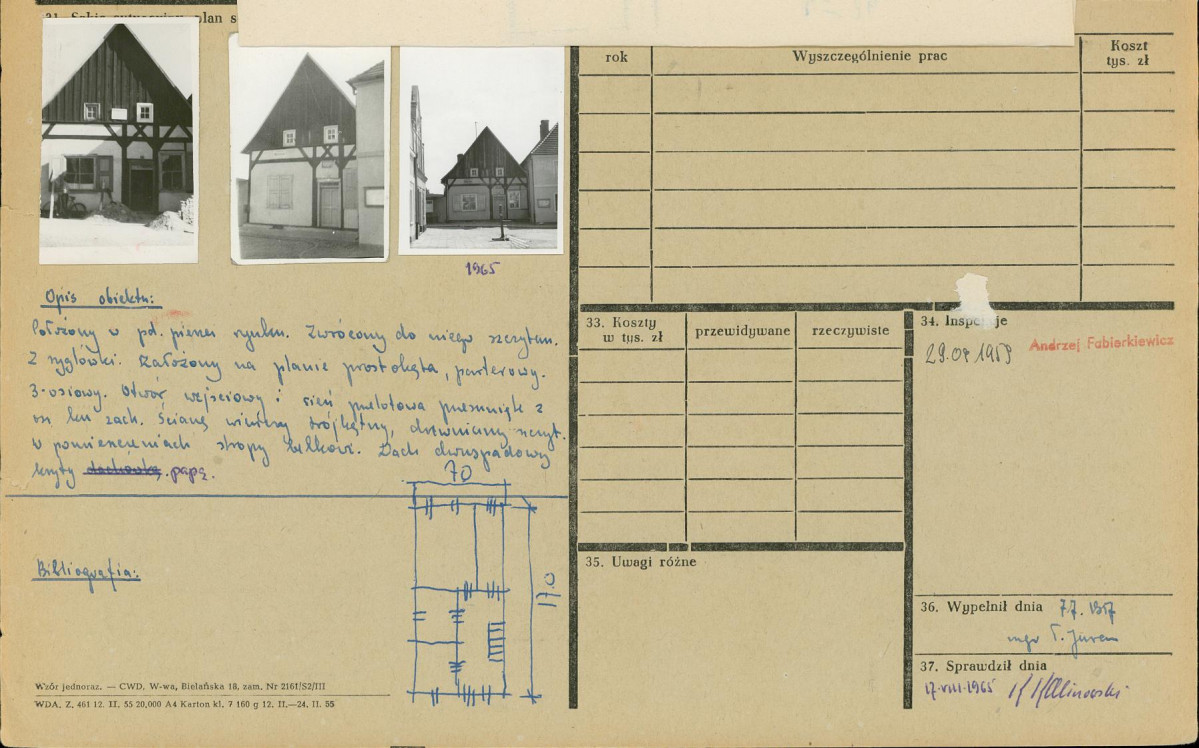 31. Szkic sytuacyjny, plan s
1965
Opis obiektu:
Położony w pd. pierzei rynku. Zwrócony do niego szczytem.
Z ryglówki. Założony na planie prostokąta, parterowy.
3-osiowy. Otwór wejściowy i sień przelotowa przesunięte z
osi ku zach. Ściana wieńczy trójkątny, drewniany szczyt.
w pomieszczeniach stropy belkowe. Dach dwuspadowy
kryty dachówką papą.
70
17.0
Bibliografia:
Wzór jednoraz. — CWD, W-wa, Bielańska 18, zam. Nr 2161/S2/III
WDA. Z. 461 12. II. 55 20,000 A4 Karton kl. 7 160 g 12. II.—24. II. 55
rok
Wyszczególnienie prac
Koszt
tys. zł
33. Koszty
w tys. zł
przewidywane
rzeczywiste
34. Inspekcje
29.09 1959
Andrzej Fabierkiewicz
35. Uwagi różne
36. Wypełnił dnia 7.7. 1957
mgr T.
37. Sprawdził dnia
17.VIII.1965 Kalinowski